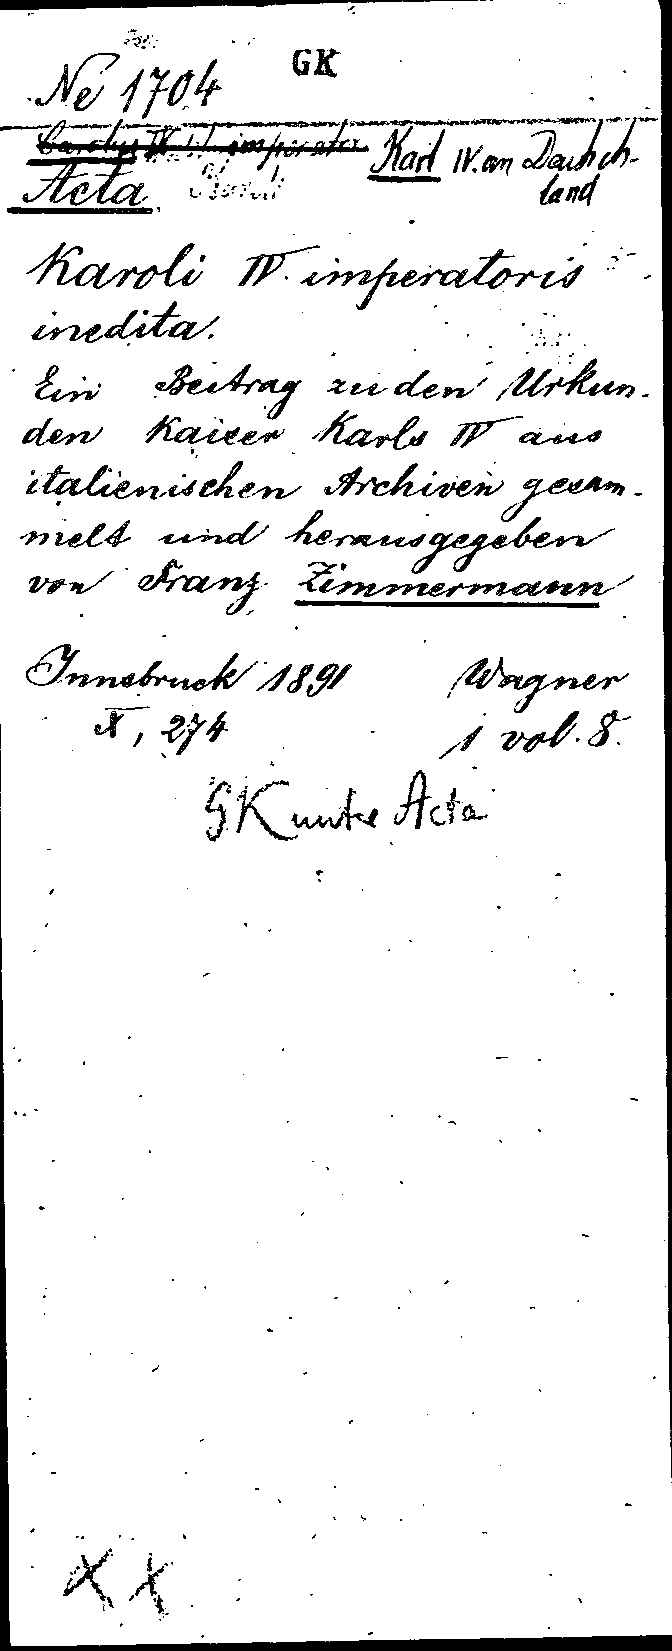 GK
Ne 1704
Carolus IV imperator Karl IV. an Deutsch-
land
Acta
Karoli IV. imperatoris
inedita.
Ein Beitrag zu den Urkun-
den Kaiser Karls IV aus
italienischen Archiven gesam-
melt und herausgegeben
von Franz Zimmermann
Innsbruck 1891 Wagner
X, 274 1 vol. 8.
GK unter Acta
XX